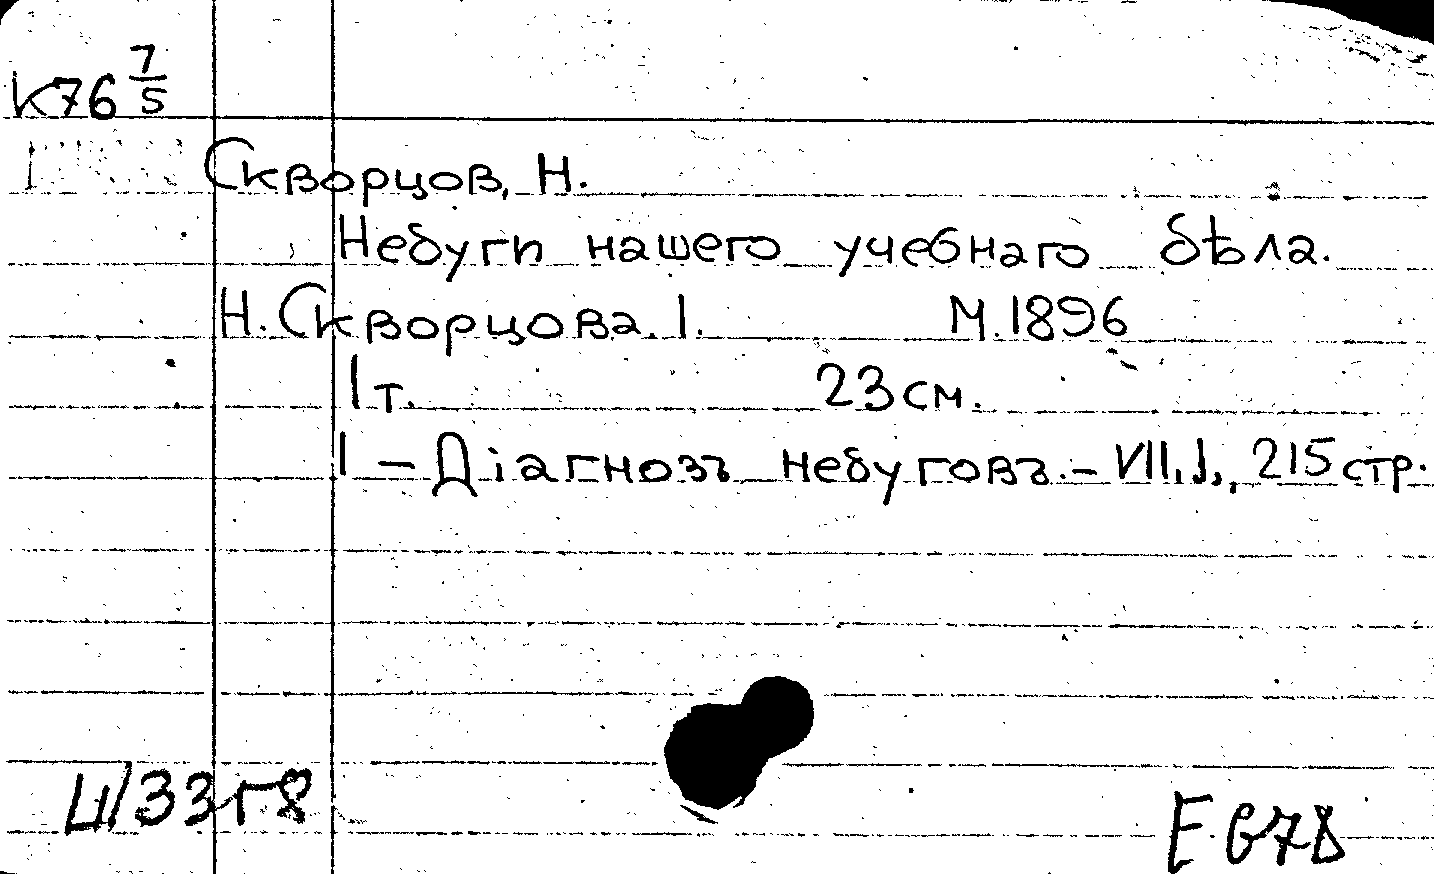 К76 7/5
Скворцов, Н.
Недуги нашего учебнаго дѣла.
Н. Скворцова. I. М. 1896
1 т. 23 см.
I – Діагнозъ недуговъ. – VII, I,, 215 стр.
Ц/33 г8
Е 678